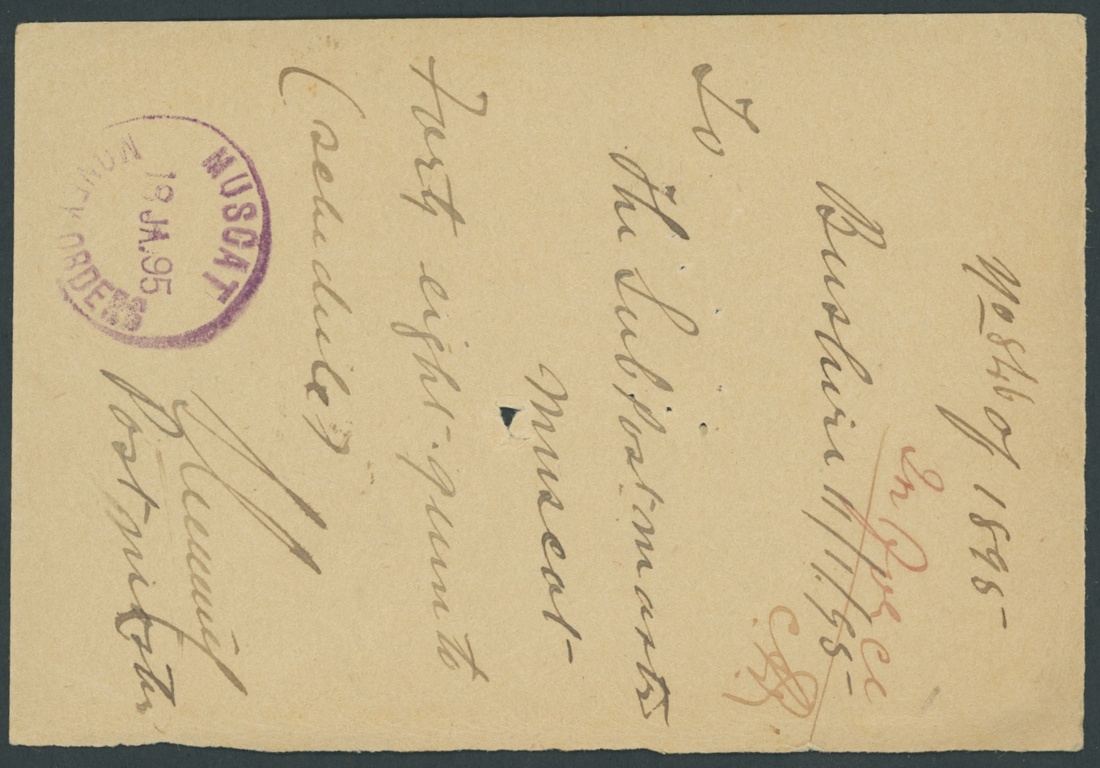 No 846 of 1895
In Voice
Bushire 11/1/95
To
The Sub Postmaster
Muscat
Forty eight
(schedule)
Postmaster
MUSCAT
19 JA. 95
MONEY ORDERS